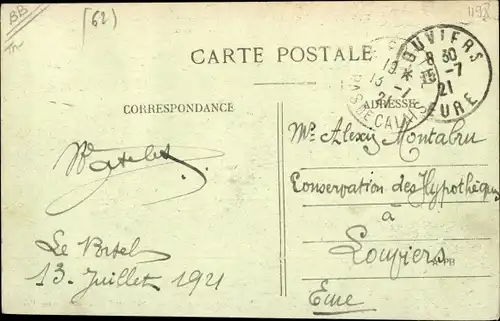 BB
(62)
1198
CARTE POSTALE
LOUVIERS
8 30
15 -7
21
EURE
19
13 -7
21
PAS DE CALAIS
CORRESPONDANCE
ADRESSE
Mr Alexis Montabru
Conservation des Hypothèques
à
Louviers
Eure
Le Portel
13 Juillet 1921